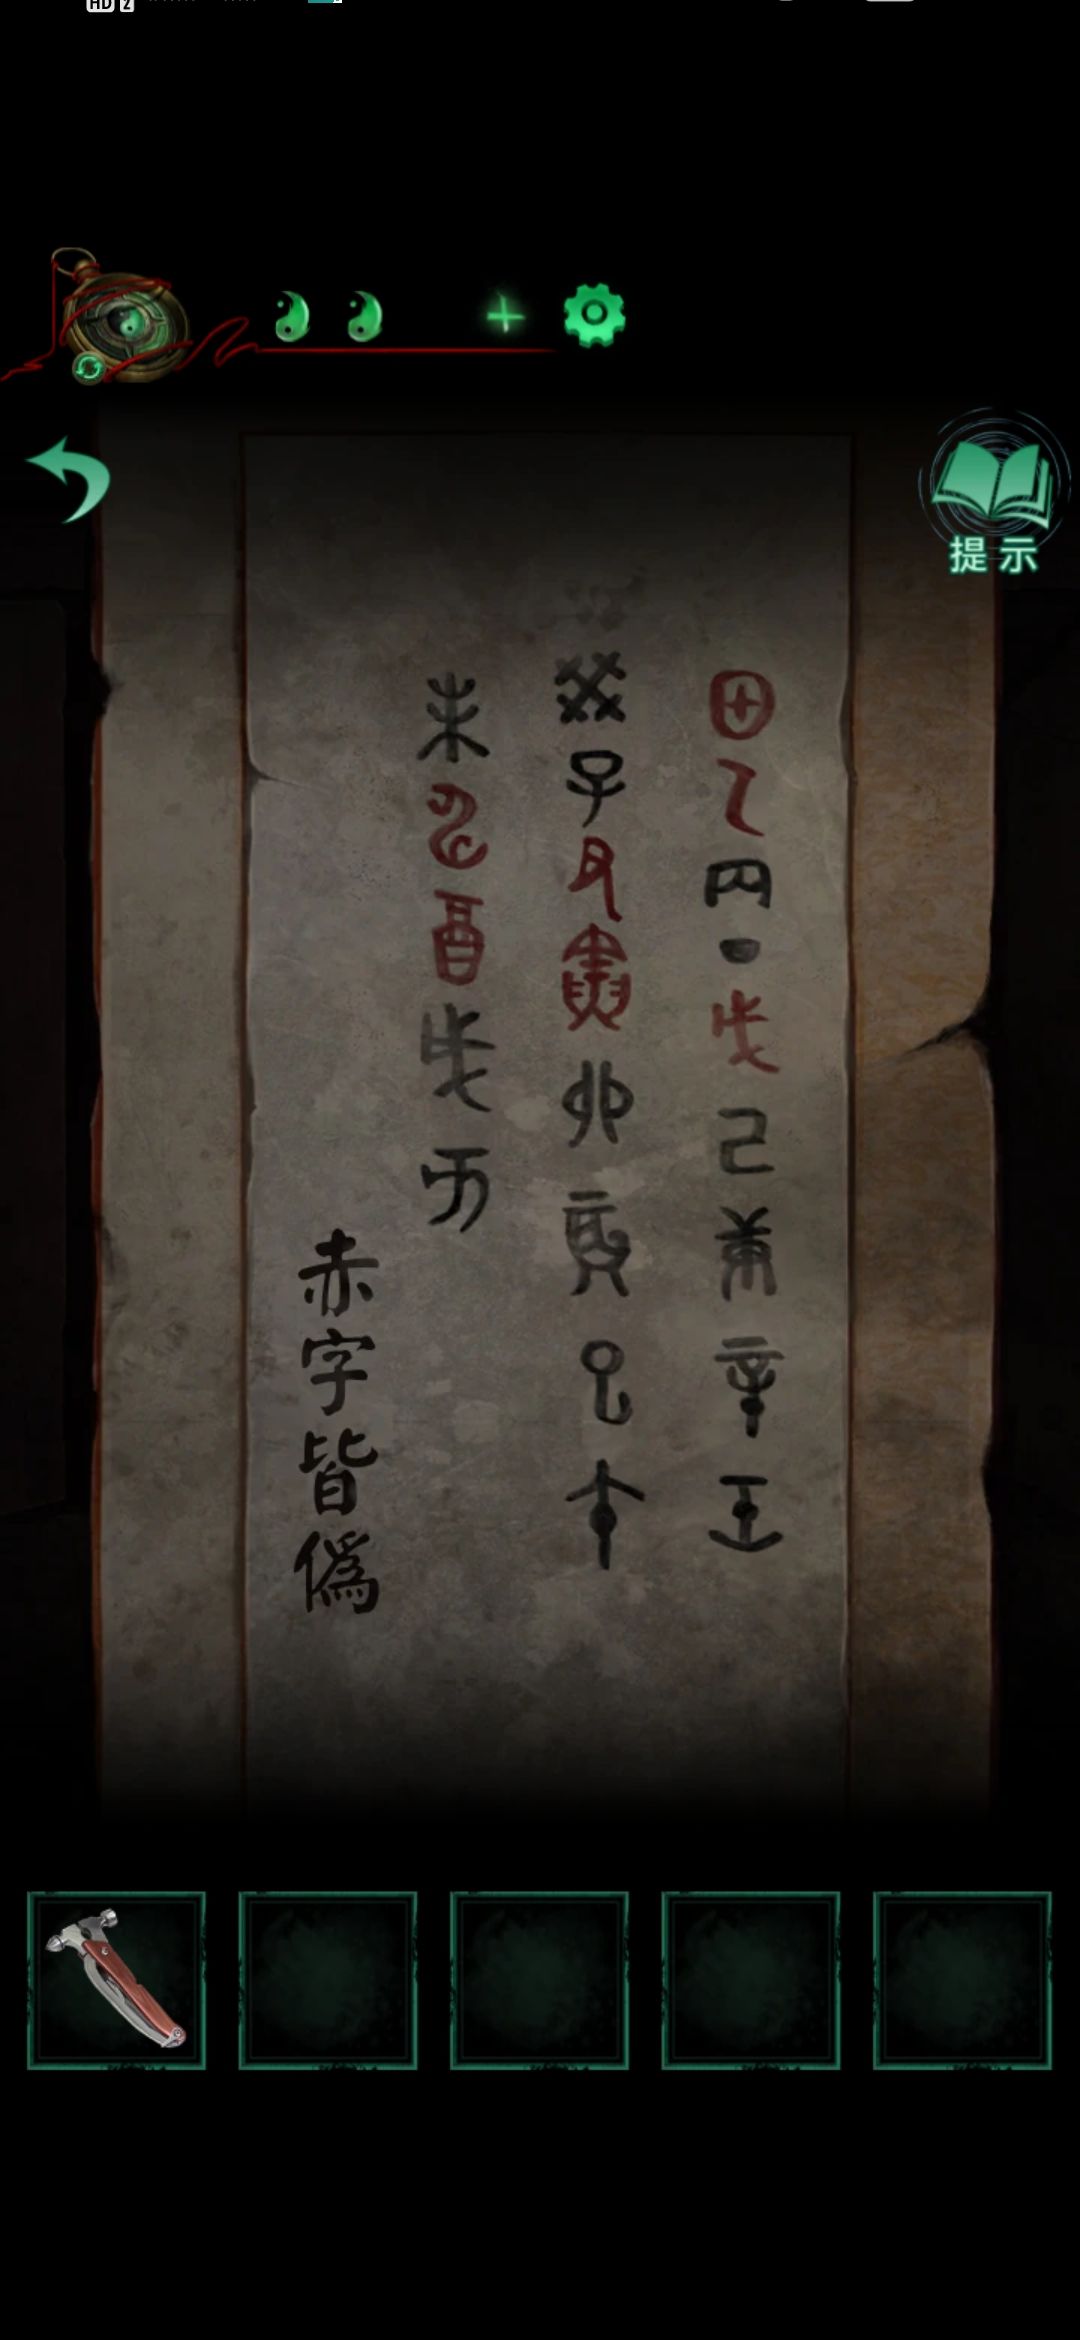 HD 2
提示
甲乙丙丁戊己庚辛壬
癸子丑寅卯辰巳午
未申酉戌亥
赤字皆偽